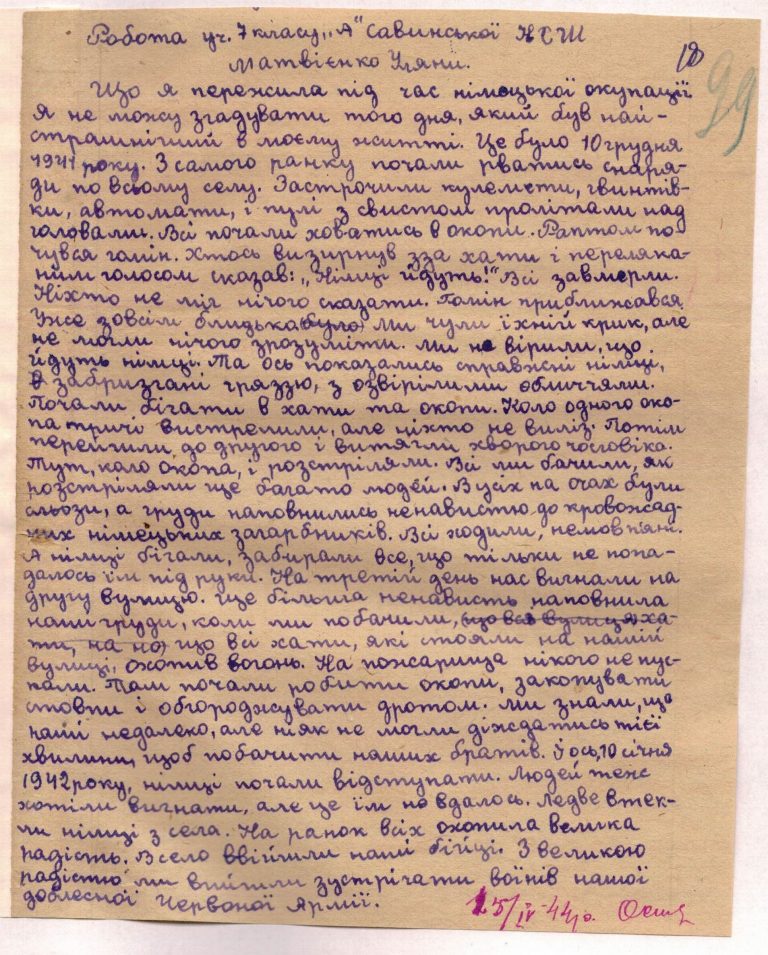 Робота уч. 7 класу „А" Савинської НСШ
Матвієнко Уляни.
18
99
Що я пережила під час німецької окупації
Я не можу згадувати того дня, який був най-
страшніший в моєму житті. Це було 10 грудня
1941 року. З самого ранку почали рватись снаря-
ди по всьому селу. Застрочили кулемети, гвинтів-
ки, автомати, і пулі з свистом пролітали над
головами. Всі почали ховатись в окопи. Раптом по-
чувся гомін. Хтось визирнув зза хати і переляка-
ним голосом сказав: „Німці йдуть!" Всі завмерли.
Ніхто не міг нічого сказати. Гомін приближався.
Уже зовсім близька (було) ми чули їхній крик, але
не могли нічого зрозуміти. Ми не вірили, що
йдуть німці. Та ось показались справжні німці,
забризгані гряззю, з озвірілими обличчями.
Почали бігати в хати та окопи. Коло одного око-
па тричі вистрелили, але ніхто не виліз. Потім
перейшли до другого і витягли хворого чоловіка.
Тут, коло окопа, і розстріляли. Всі ми бачили, як
розстріляли ще багато людей. В усіх на очах були
сльози, а груди наповнились ненавистю до кровожад-
них німецьких загарбників. Всі ходили, немов п'яні.
А німці бігали, забирали все, що тільки не попа-
далось їм під руки. На третій день нас вигнали на
другу вулицю. Ще більша ненависть наповнила
наши груди, коли ми побачили, (що вся вулиця) ха-
ти, на но) що всі хати, які стояли на нашій
вулиці, охопив вогонь. На пожарища нікого не пус-
кали. Там почали робити окопи, закопувати
стовпи і обгороджувати дротом. Ми знали, що
наші недалеко, але ніяк не могли діждатись тієї
хвилини, щоб побачити наших братів. І ось, 10 січня
1942 року, німці почали відступати. Людей теж
хотіли вигнати, але це їм не вдалось. Ледве втек-
ли німці з села. На ранок всіх охопила велика
радість. В село ввійшли наші бійці. З великою
радістю ми вийшли зустрічати воїнів нашої
доблесної Червоної Армії.
25/IV-44р.